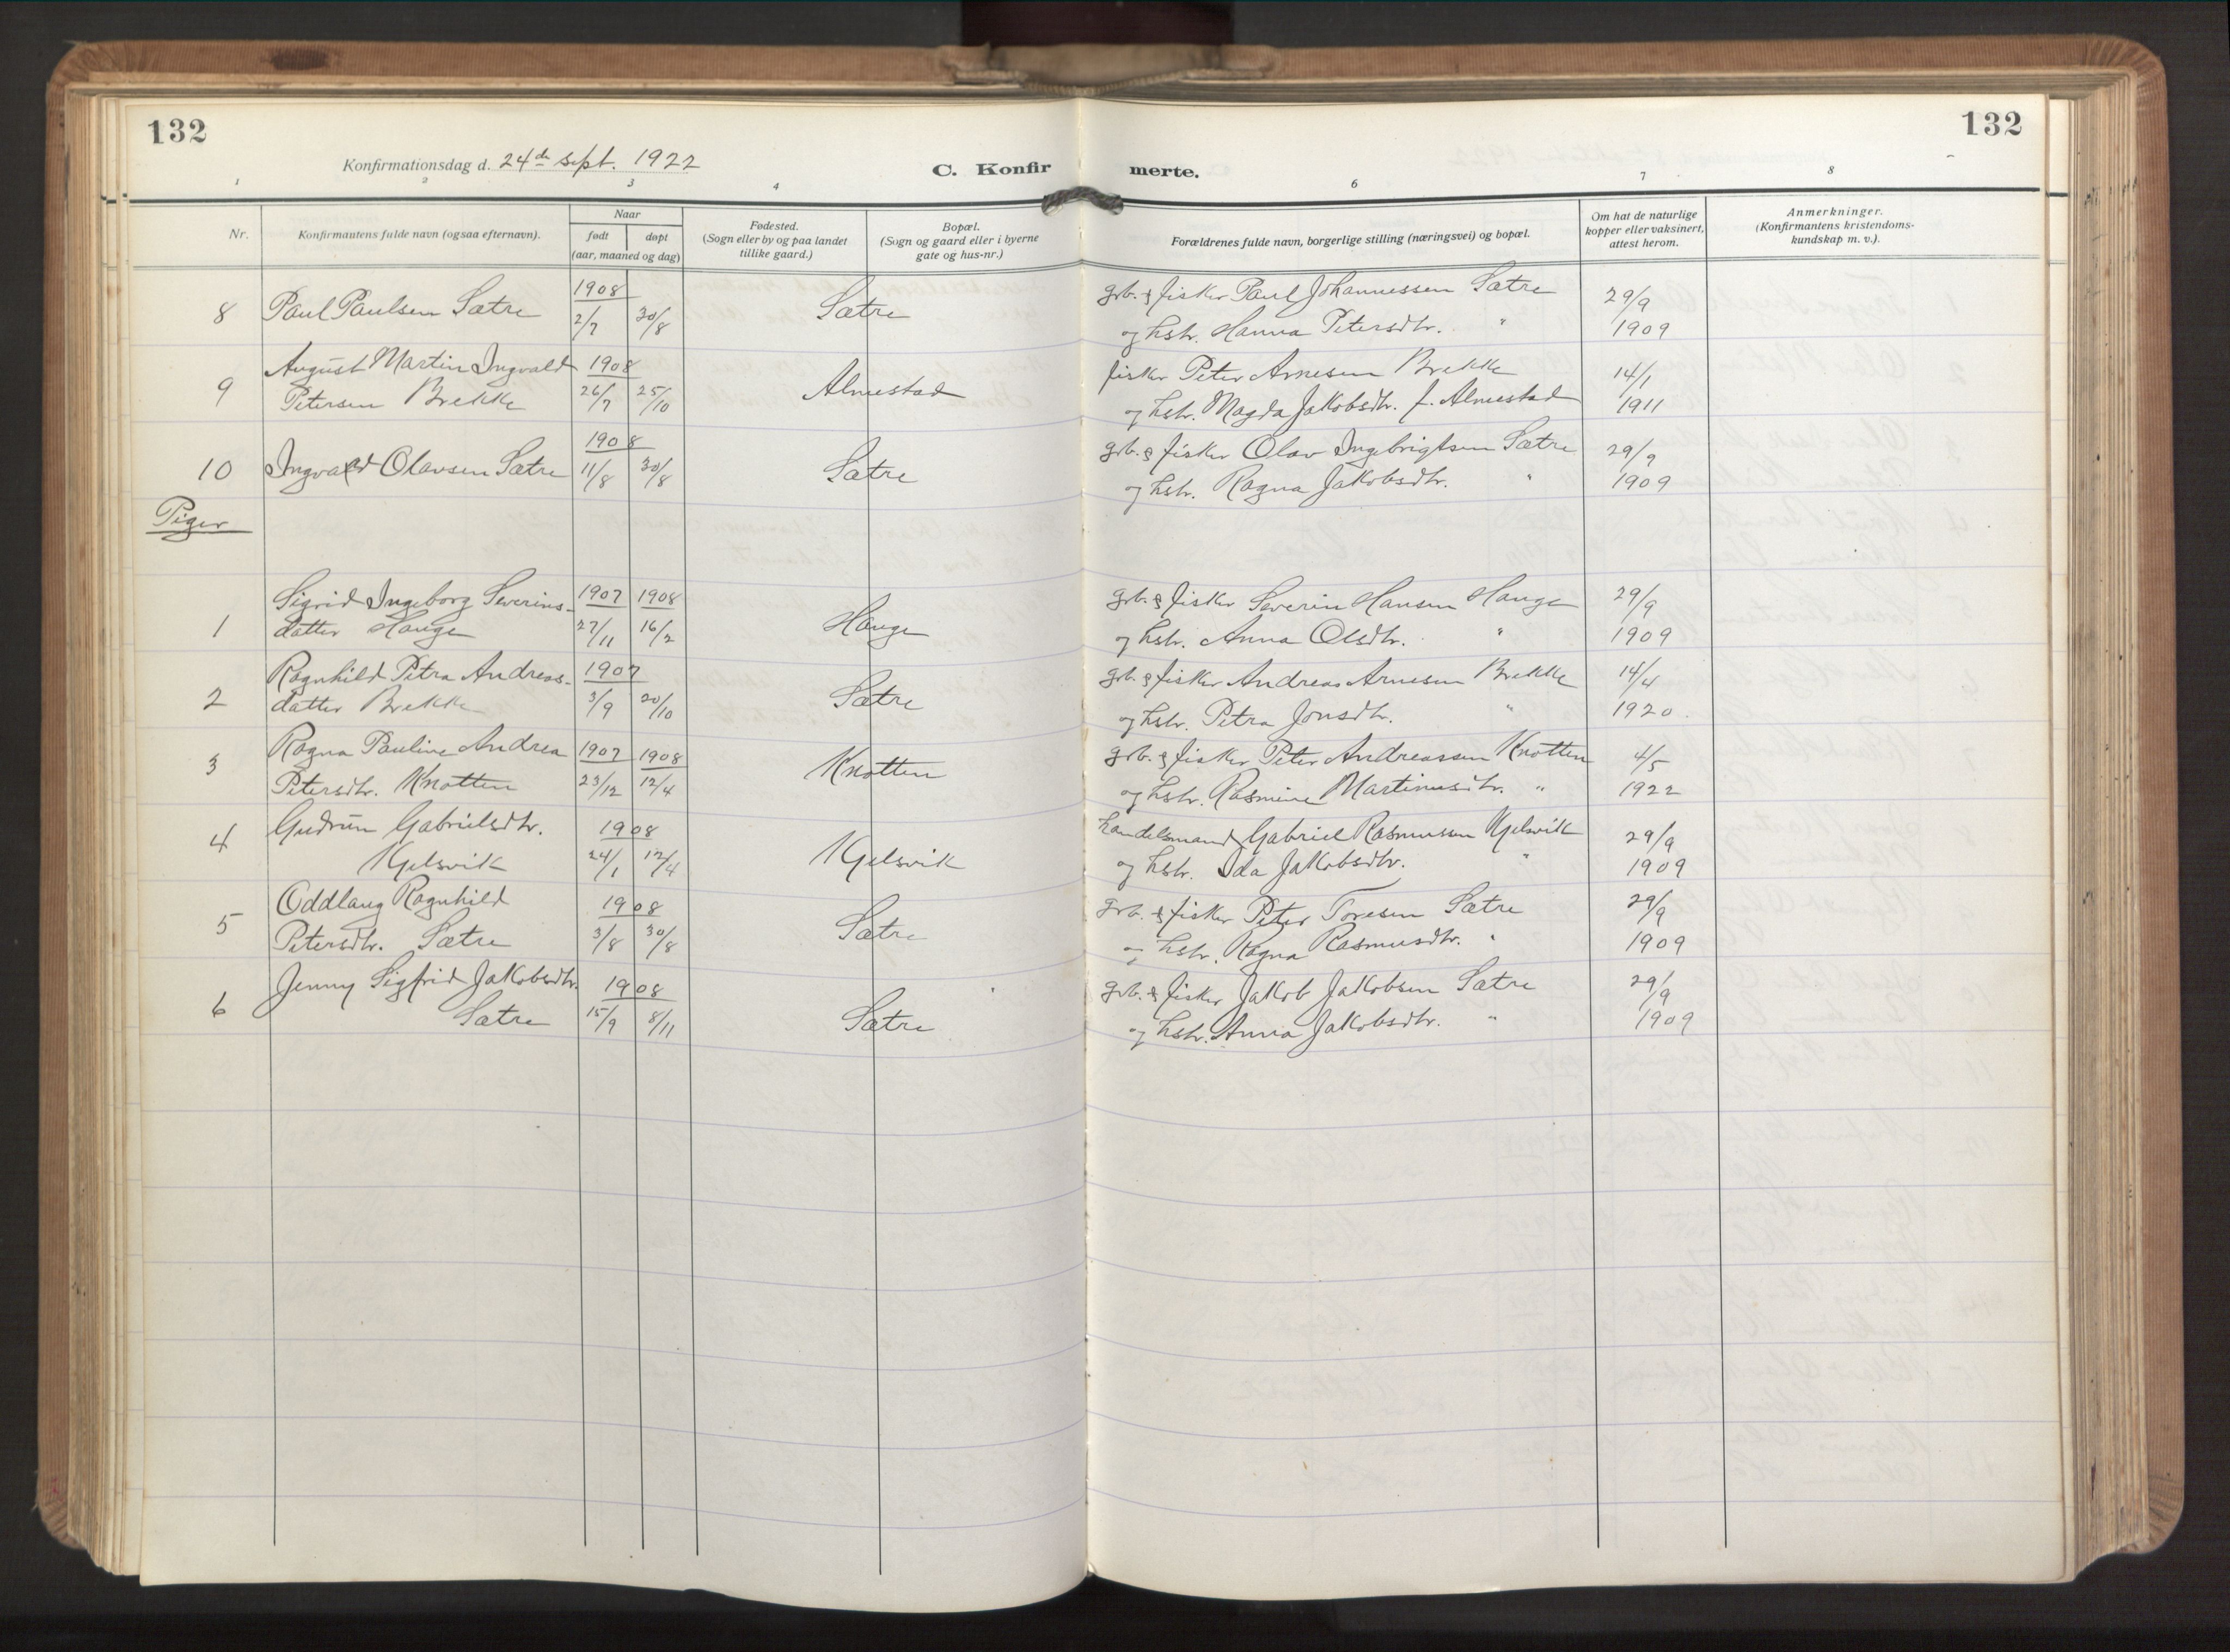 132
132
Konfirmationsdag d. 24de sept. 1922
C. Konfir
merte.
1 2 3 4 6 7 8
Nr.
Konfirmantens fulde navn (ogsaa efternavn).
Naar
født døpt
(aar, maaned og dag)
Fødested.
(Sogn eller by og paa landet
tillike gaard.)
Bopæl.
(Sogn og gaard eller i byerne
gate og hus-nr.)
Forældrenes fulde navn, borgerlige stilling (næringsvei) og bopæl.
Om hat de naturlige
kopper eller vaksinert,
attest herom.
Anmerkninger.
(Konfirmantens kristendoms-
kundskap m. v.).
1908 grb. & fisker Paul Johannessen Sætre 29/9
8 Paul Paulsen Sætre 2/7 30/8 Sætre og hstr. Hanna Petersdtr. " 1909
August Martin Ingvald 1908 fisker Peter Arnesen Brekke 14/1
9 Petersen Brekke 26/7 25/10 Almestad og hstr. Magda Jakobsdtr. f. Almestad 1911
1908 grb. & fisker Olav Ingebrigtsen Sætre 29/9
10 Ingvald Olavsen Sætre 11/8 30/8 Sætre og hstr. Ragna Jakobsdtr. " 1909
Piger
Sigrid Ingeborg Severins- 1907 1908 grb. & fisker Severin Hansen Hauge 29/9
1 datter Hauge 27/11 16/2 Hauge og hstr. Anna Olsdtr. " 1909
Ragnhild Petra Andreas- 1907 grb. & fisker Andreas Arnesen Brekke 14/4
2 datter Brekke 3/9 20/10 Sætre og hstr. Petra Jonsdtr. " 1920.
3 Ragna Pauline Andrea 1907 1908 grb. & fisker Peter Andreassen Knotten 4/5
Petersdtr. Knotten 23/12 12/4 Knotten og hstr. Rasmine Martinusdtr. " 1922
4 Gudrun Gabrielsdtr. 1908 handelsmand Gabriel Rasmussen Kjelsvik 29/9
Kjelsvik 24/1 12/4 Kjelsvik og hstr. Ida Jakobsdtr. " 1909
Oddlaug Ragnhild 1908 grb. & fisker Peter Toresen Sætre 29/9
5 Petersdtr. Sætre 3/8 30/8 Sætre og hstr. Ragna Rasmusdtr. " 1909
Jenny Sigfrid Jakobsdtr. 1908 grb. & fisker Jakob Jakobsen Sætre 29/9
6 Sætre 15/9 8/11 Sætre og hstr. Anna Jakobsdtr. " 1909